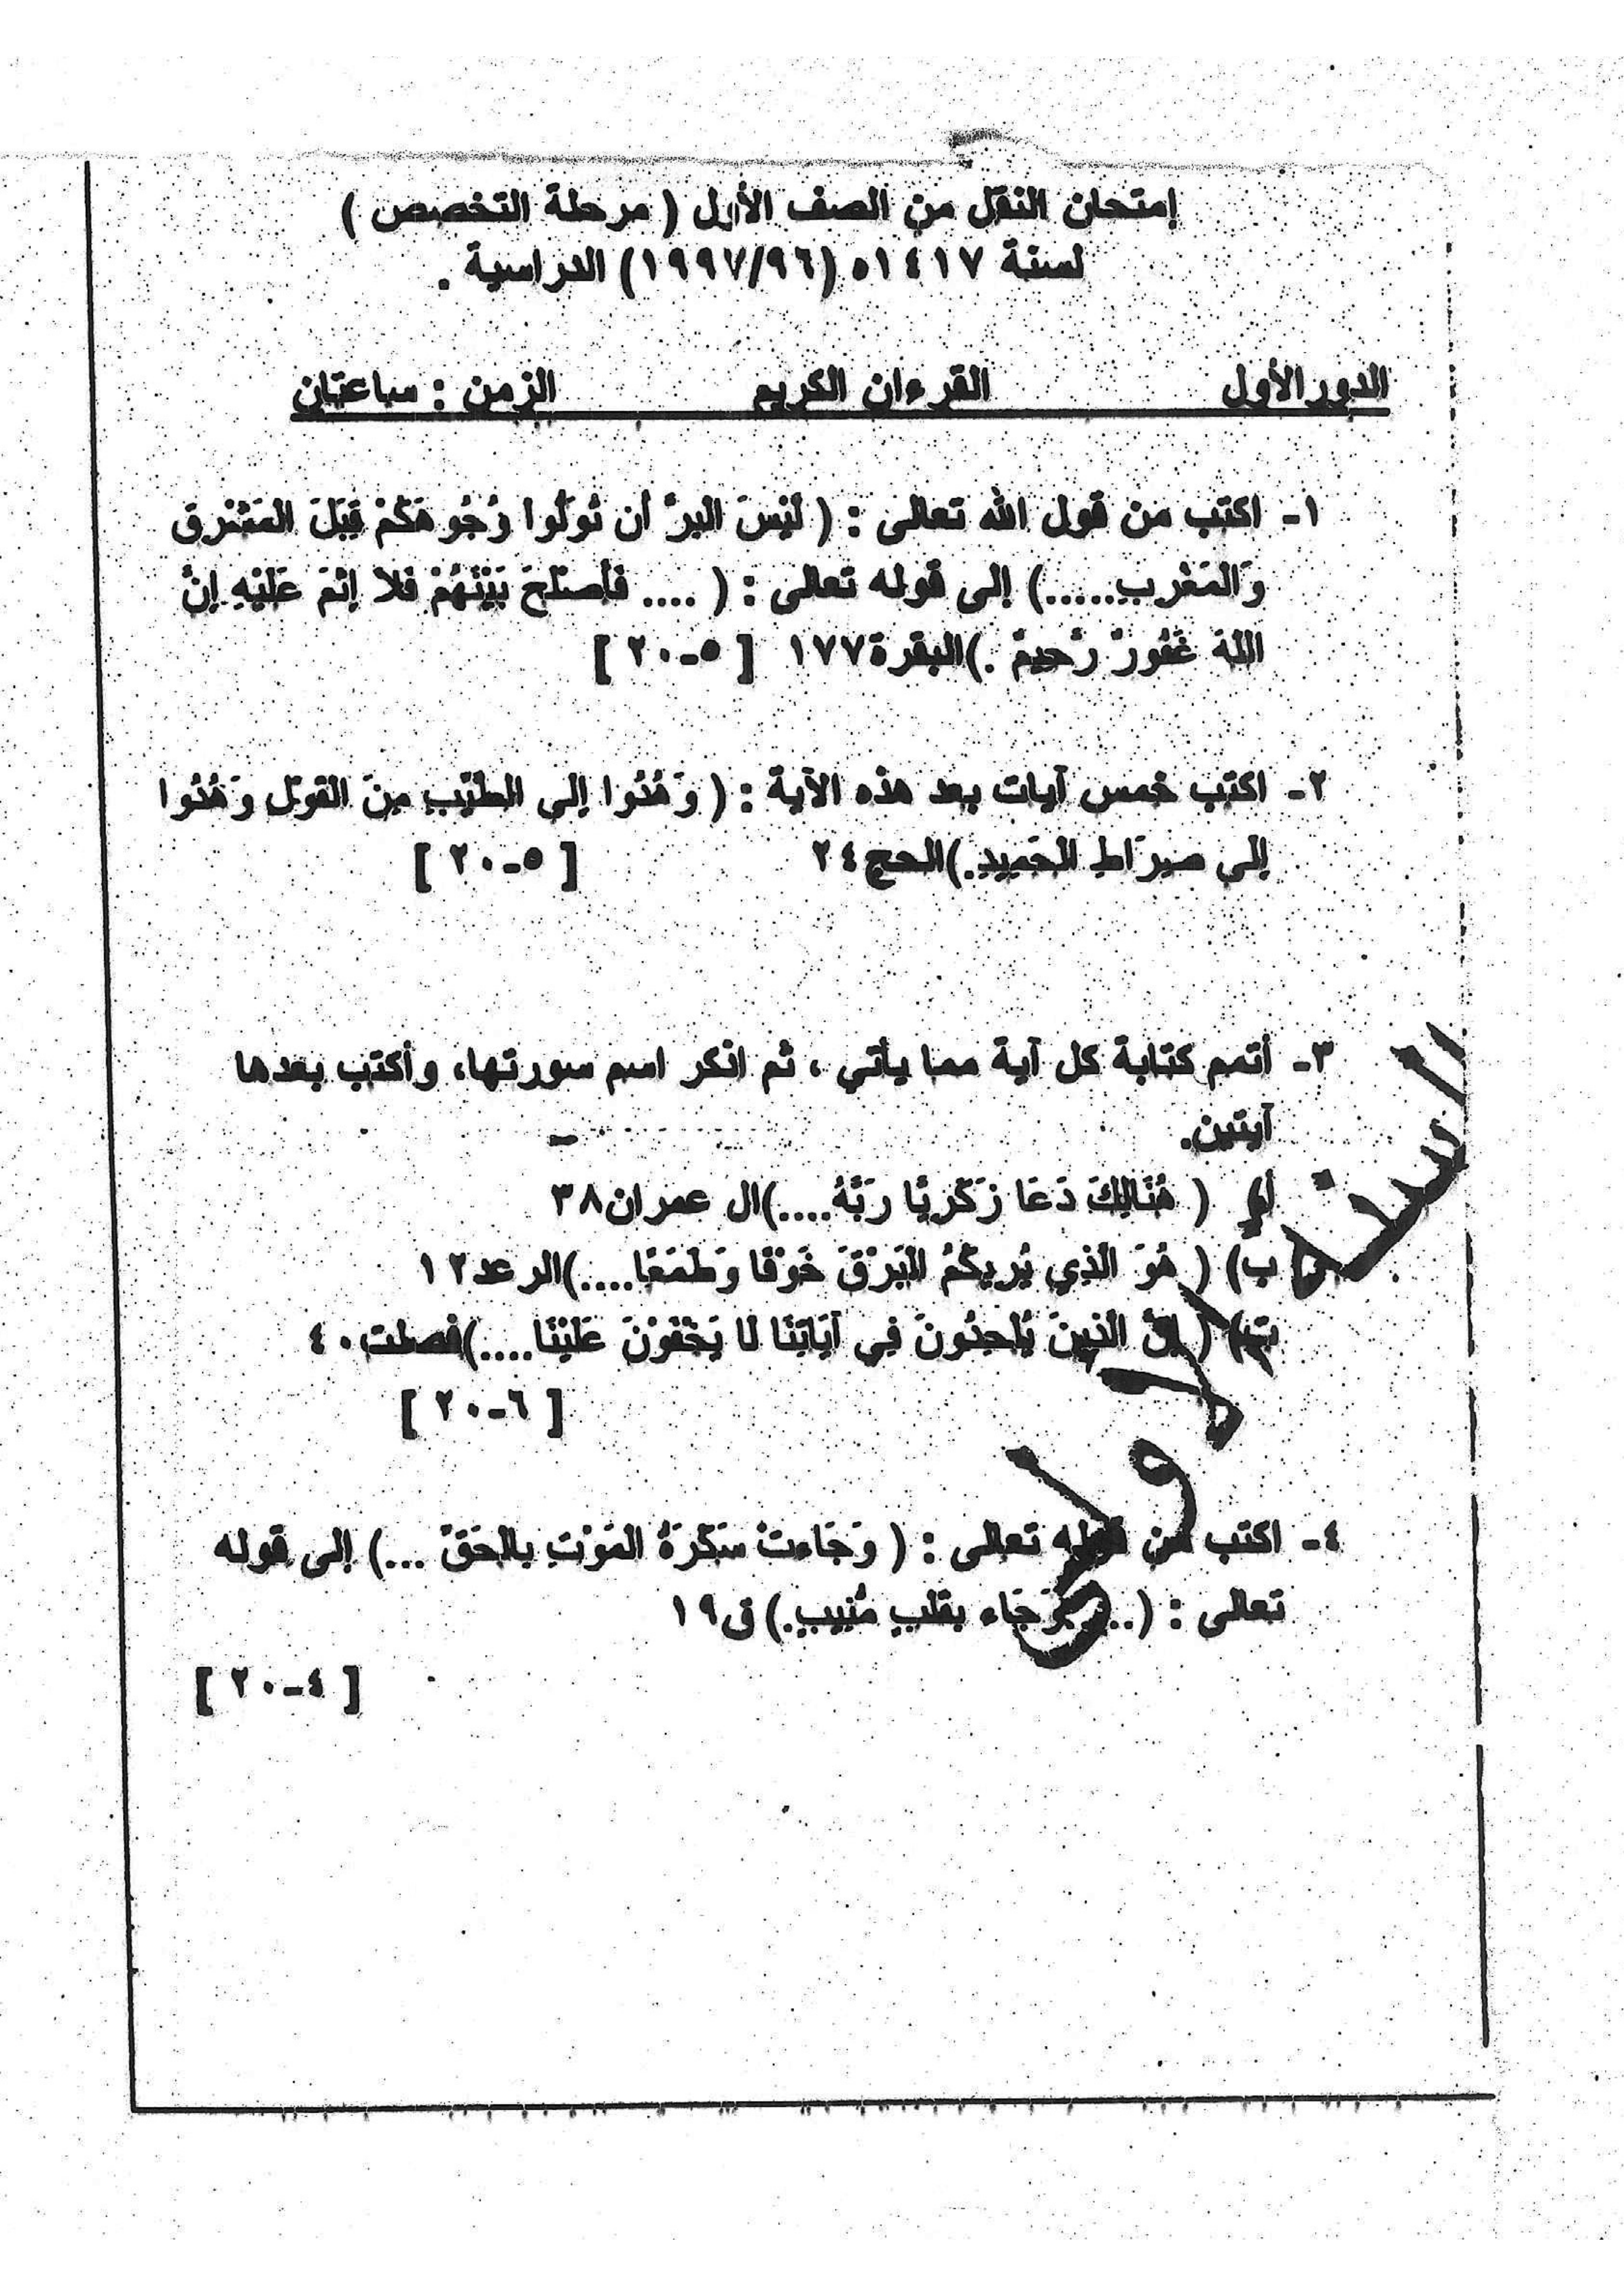 إمتحان النقل من الصف الأول ( مرحلة التخصص )
لسنة ١٤١٧ه (١٩٩٧/٩٦) الدراسية .
الدور الأول القرءان الكريم الزمن : ساعتان
١- اكتب من قول الله تعالى : ( لَيْسَ البرَّ أن تُوَلُّوا وُجُوهَكُمْ قِبَلَ المَشْرِق
وَالمَغْرِبِ.....) إلى قوله تعالى : ( .... فَأصْلَحَ بَيْنَهُمْ فَلا إثْمَ عَلَيْهِ إنَّ
اللهَ غَفُورٌ رَّحِيمٌ .)البقرة١٧٧ [ ٥-٢٠ ]
٢- اكتب خمس آيات بعد هذه الآية : ( وَهُدُوا إلى الطَّيِّبِ مِنَ القَوْلِ وَهُدُوا
إلى صِرَاطِ الحَمِيدِ.)الحج٢٤ [ ٥-٢٠ ]
٣- أتمم كتابة كل آية مما يأتي ، ثم اذكر اسم سورتها، وأكتب بعدها
آيتين.
أ) ( هُنَالِكَ دَعَا زَكَرِيَّا رَبَّهُ....)ال عمران٣٨
ب) ( هُوَ الَّذِي يُرِيكُمُ البَرْقَ خَوْفًا وَطَمَعًا....)الرعد١٢
ت) ( إنَّ الَّذِينَ يُلْحِدُونَ فِي آيَاتِنَا لَا يَخْفَوْنَ عَلَيْنَا....)فصلت٤٠
[ ٦-٢٠ ]
٤- اكتب من قوله تعالى : ( وَجَاءتْ سَكْرَةُ المَوْتِ بِالحَقِّ ...) إلى قوله
تعالى : (... وَجَاء بِقَلْبٍ مُّنِيبٍ.) ق١٩
[ ٤-٢٠ ]